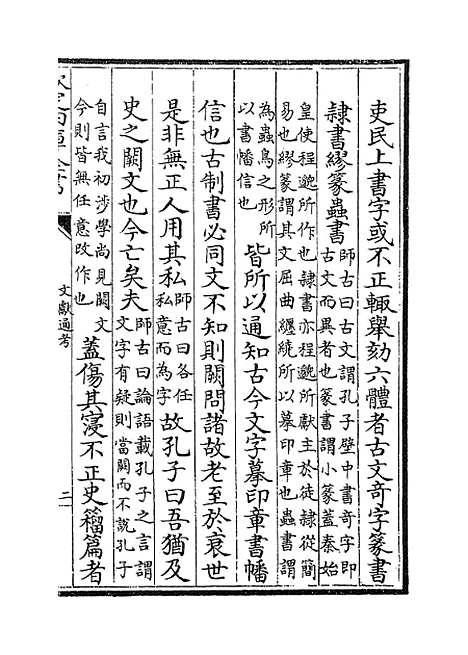 吏民上書字或不正輒舉劾六體者古文奇字篆書
隸書繆篆蟲書師古曰古文謂孔子壁中書奇字即古文而異者也篆書謂小篆蓋秦始
皇使程邈所作也隸書亦程邈所獻主於徒隸從簡易也繆篆謂其文屈曲纏繞所以摹印章也蟲書謂
為蟲鳥之形所以書幡信也皆所以通知古今文字摹印章書幡
信也古制書必同文不知則闕問諸故老至於衰世
是非無正人用其私師古曰各任私意而為字故孔子曰吾猶及
史之闕文也今亡矣夫師古曰論語載孔子之言謂文字有疑則當闕而不說孔子
自言我初涉學尚見闕文今則皆無任意改作也蓋傷其寖不正史籀篇者
文獻通考
二